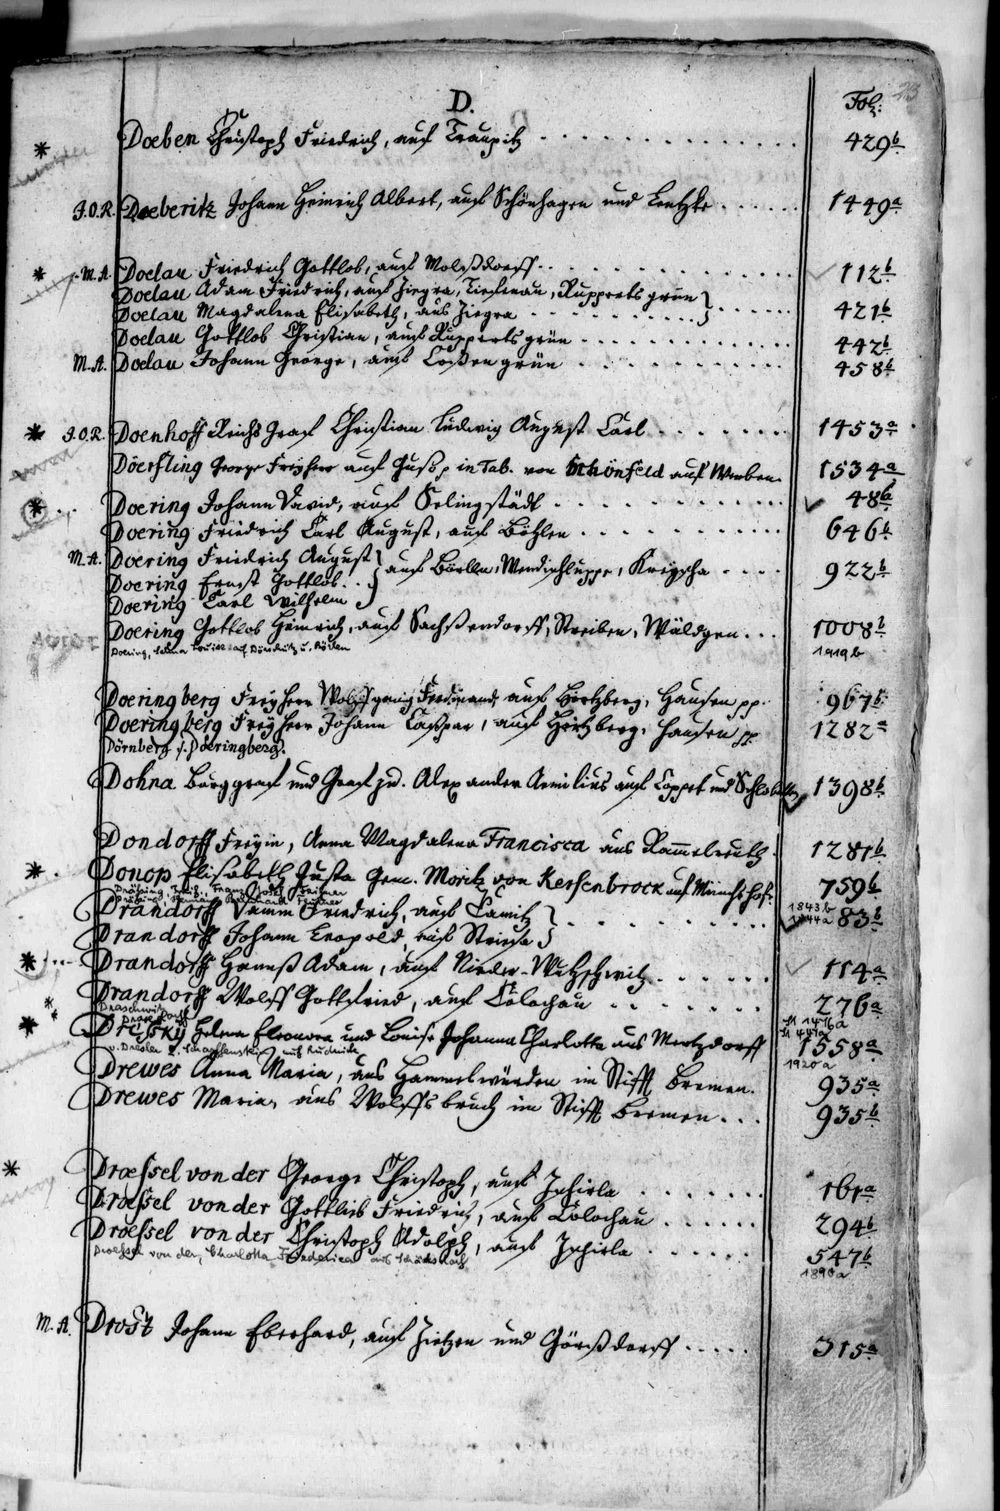 D.
Fol: 23
* Doeben Christoph Friedrich, auf Traupitz 429b
J.O.R. Doeberitz Johann Heinrich Albert, auf Schönhagen und Lentzke 1449a
* M.A. Doelau Friedrich Gottlob, auf Molßdorff 112b
Doelau Adam Friedrich, auf Ziegra, Liebenau, Rupperts grün
Doelau Magdalena Elisabeth, aus Ziegra 421b
Doelau Gottlob Christian, auf Rupperts grün 442b
M.A. Doelau Johann George, auf Coßengrün 458b
* J.O.R. Doenhoff Reichs Graf Christian Ludwig August Carl 1453a
Döerfling George Freyherr auf Gusow p in Tab. von Schönfeld auf Werben 1534a
* Doering Johann David, auf Selingstädt 48b
Doering Friedrich Carl August, auf Böhlen 646b
M.A. Doering Friedrich August
Doering Ernst Gottlob auf Börlln, Wendischluppe, Knigscha 922b
Doering Carl Wilhelm
Doering Gottlob Heinrich, auf Sachßendorff, Streiben, Wäldgen 1008b
Doering, Louise auf u. 1919b
Doeringberg Freyherr Wolffgang Ferdinand auf Hertzberg, Hausen pp. 967b
Doeringberg Freyherr Johann Caspar, auf Hertzberg, Hausen pp 1282a
Dörnberg s. Doeringberg.
Dohna Burggraf und Graf zu. Alexander Aemilius auf Coppet und Schlobitten 1398b
Dondorff Freyin, Anna Magdalena Francisca aus Rammelreuth 1281b
* Donop Elisabeth Justa Gem. Moritz von Kerssenbrock auf Münchhof 759b
Franz Josef 1843b
1844a
Drandorff Friedrich, auf Camitz
Drandorff Johann Leopold, auf Striesa 83b
* Drandorff Hannß Adam, auf Nieder-Wutzschwitz 114a
Drandorff Wolff Gottfried, auf Cölochau 276a
Draschwitz 1476a
* Dresky Helena Eleonora und Louise Johanna Charlotta aus Mertzdorff 1558a
v. Dresler u. Scharffenstein auf 1920a
Drewes Anna Maria, aus Hammelwürden im Stifft Bremen. 935a
Drewes Maria, aus Wolffsbruch im Stifft Bremen 935b
* Droessel von der George Christoph, auf Ischirla 161a
Droessel von der Gottlieb Friedrich, auf Cölochau 294b
Droessel von der Christoph Adolph, auf Ischirla 547b
Droessel von der, Charlotta Friederica aus 1890a
M.A. Drost Johann Eberhard, auf Zietzen und Görßdorff 315a